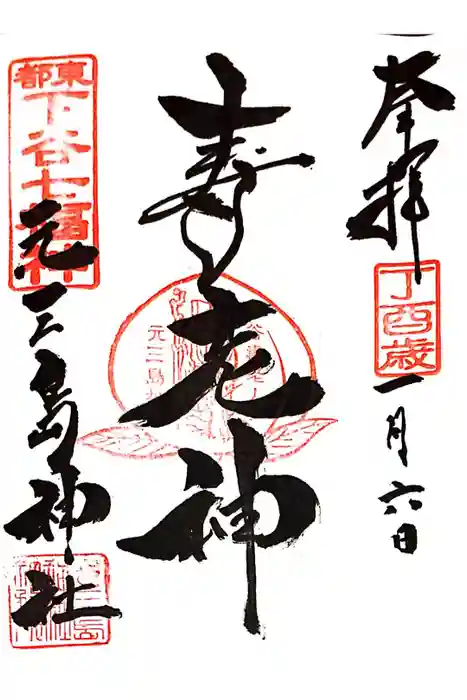 奉拝
丁酉歳
一月六日
寿老神
東都
下谷七福神
元三島神社